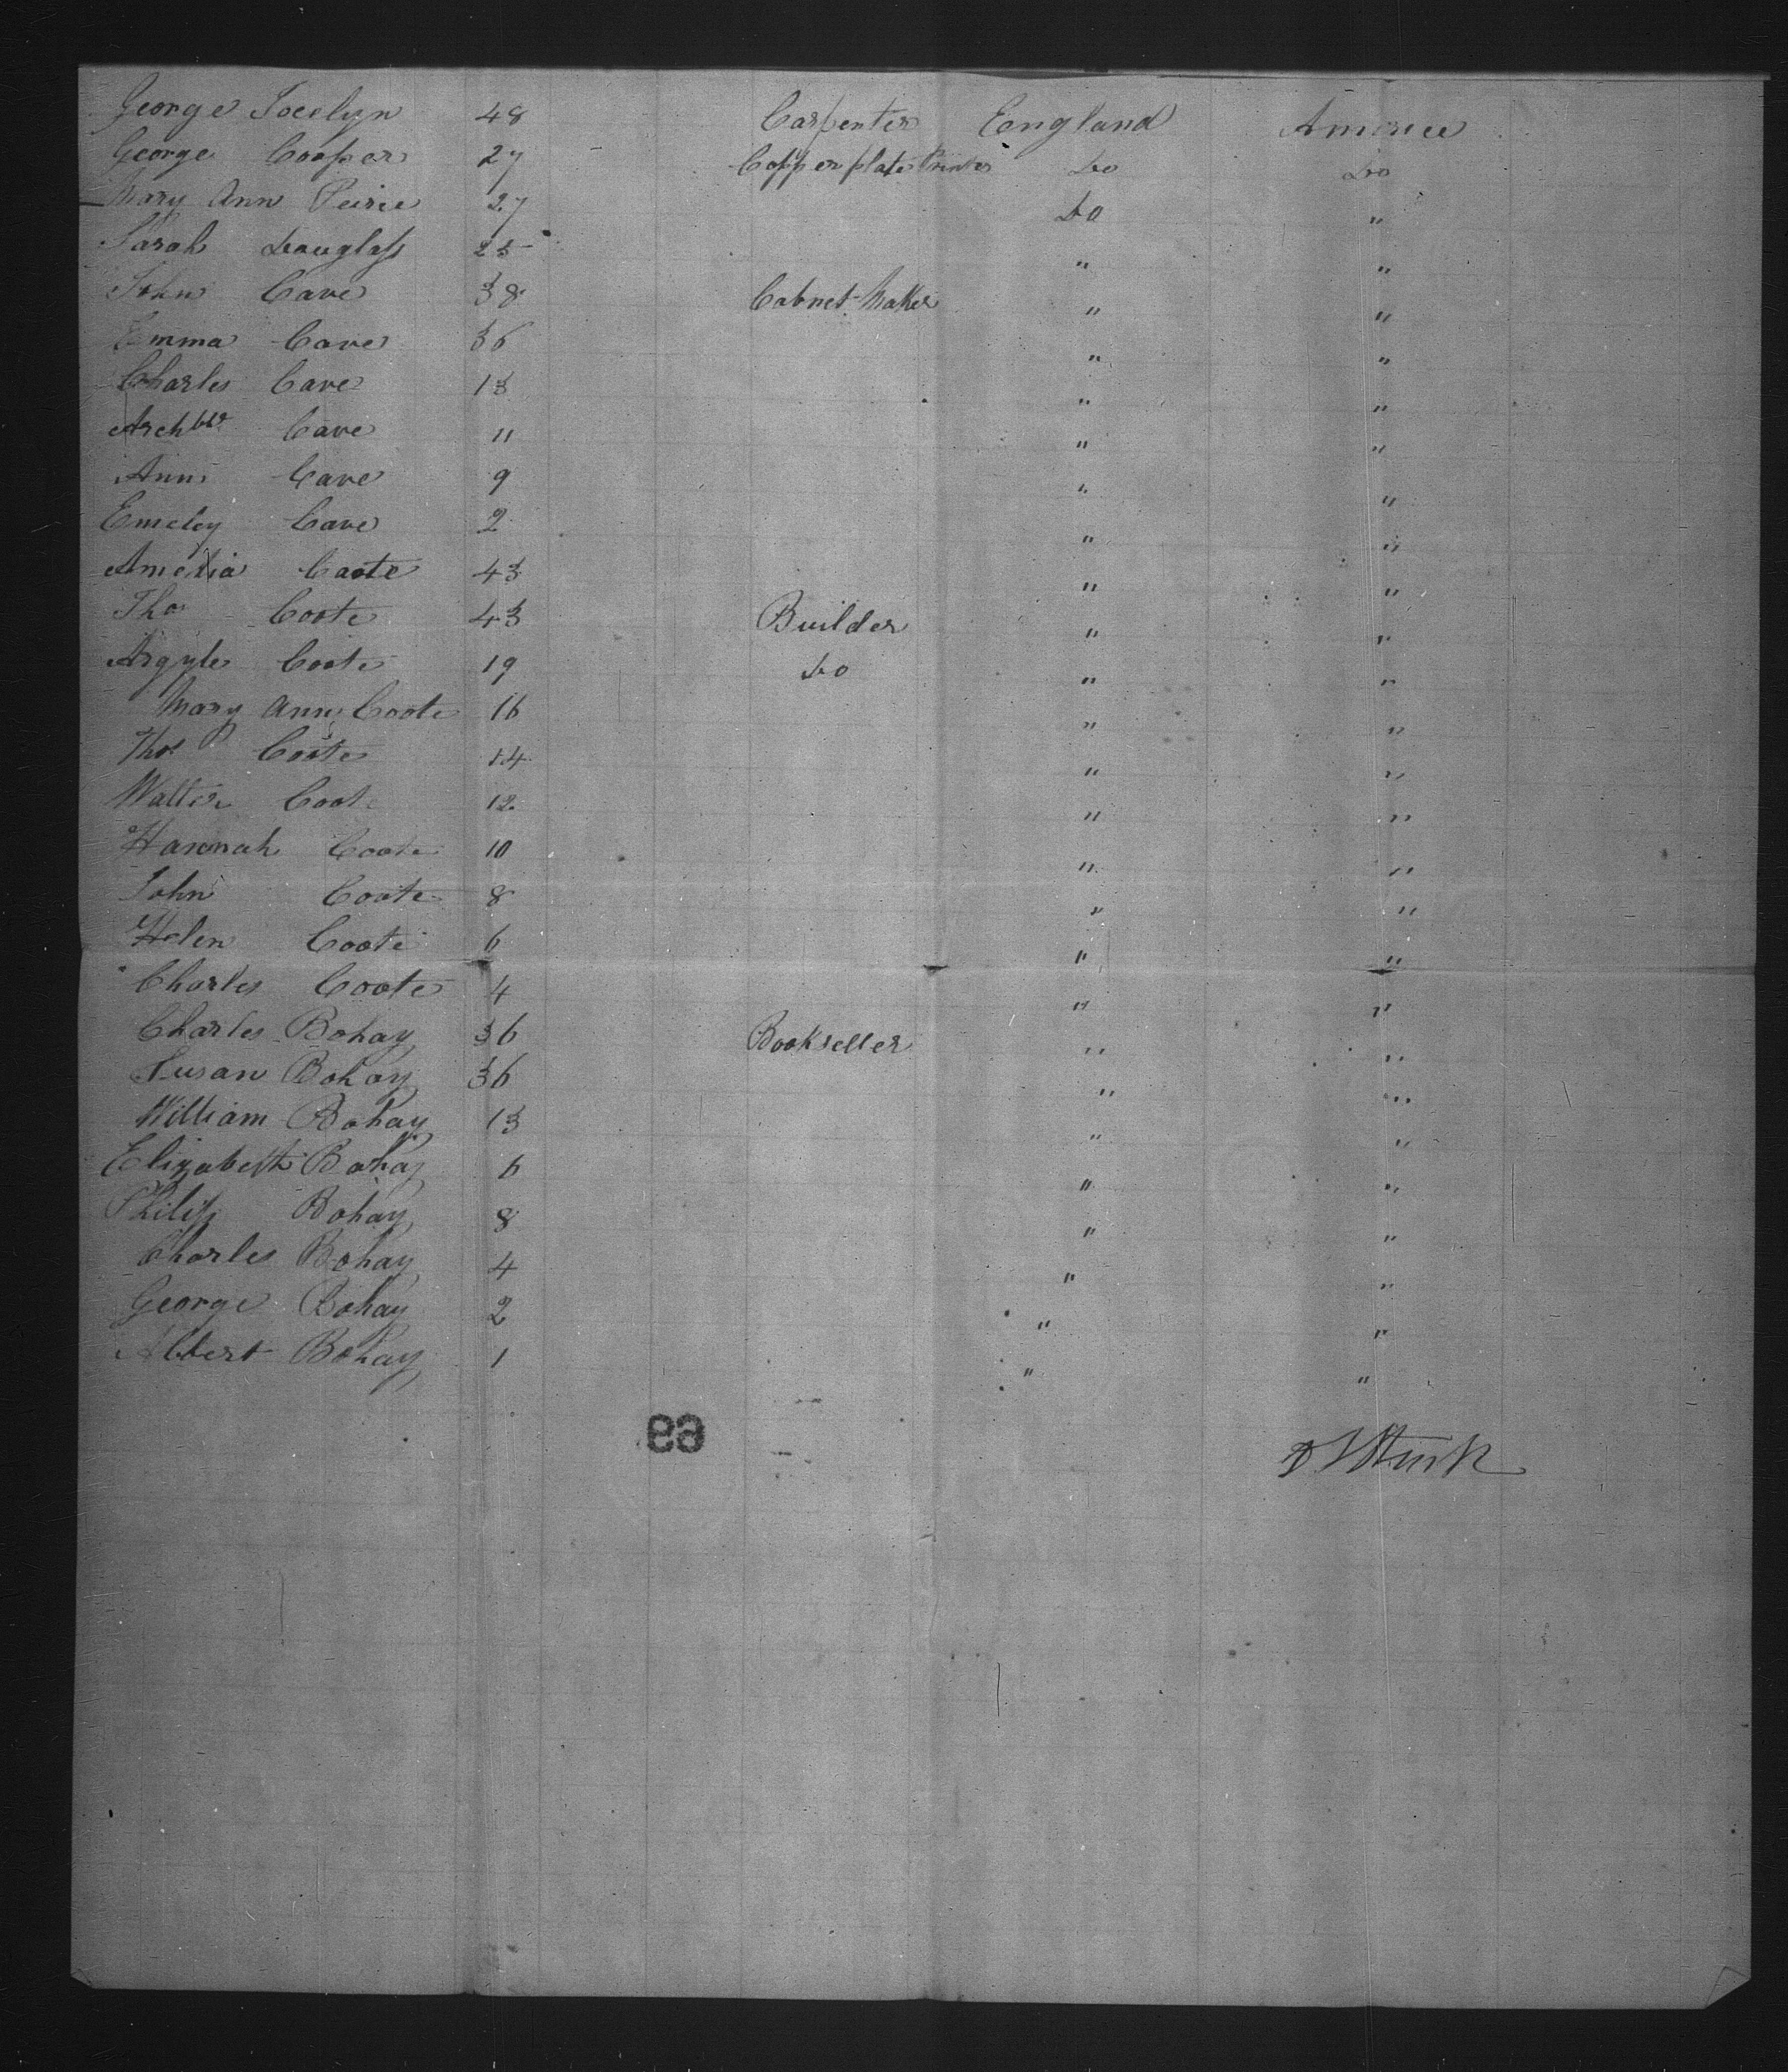 George Jocelyn 48 Carpenter England America
George Cooper 27 Copper plate Printer Do Do
Mary Ann Peirce 27 Do "
Sarah Douglass 25 " "
John Cave 38 Cabnet Maker " "
Emma Cave 36 " "
Charles Cave 13 " "
Archbld Cave 11 " "
Ann Cave 9 " "
Emeley Cave 2 " "
Amelia Coote 43 " "
Tho Coote 43 Builder " "
Argyle Coote 19 Do " "
Mary Ann Coote 16 " "
Thos Coote 14 " "
Walter Coote 12 " "
Hannah Coote 10 " "
John Coote 8 " "
Helen Coote 6 " "
Charles Coote 4 " "
Charles Bohay 36 Bookseller " "
Susan Bohay 36 " "
William Bohay 13 " "
Elizabeth Bohay 6 " "
Philip Bohay 8 " "
Charles Bohay 4 " "
George Bohay 2 " "
Albert Bohay 1 " "